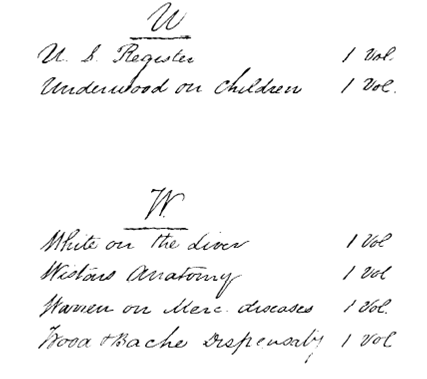 U
U. S. Register 1 Vol.
Underwood on Children 1 Vol.
W.
White on the liver 1 Vol
Wistars Anatomy 1 Vol
Warren on Merc. diseases 1 Vol.
Wood & Bache Dispensaty 1 Vol